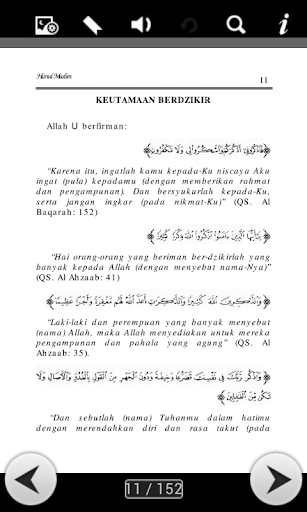 Hisnul Muslim 11
KEUTAMAAN BERDZIKIR
Allah U berfirman:
﴿فَاذْكُرُونِي أَذْكُرْكُمْ وَاشْكُرُوا لِي وَلَا تَكْفُرُونِ﴾
"Karena itu, ingatlah kamu kepada-Ku niscaya Aku
ingat (pula) kepadamu (dengan memberikan rahmat
dan pengampunan). Dan bersyukurlah kepada-Ku,
serta jangan ingkar (pada nikmat-Ku)" (QS. Al
Baqarah: 152)
﴿يَا أَيُّهَا الَّذِينَ ءَامَنُوا اذْكُرُوا اللَّهَ ذِكْرًا كَثِيرًا﴾
"Hai orang-orang yang beriman ber-dzikirlah yang
banyak kepada Allah (dengan menyebut nama-Nya)"
(QS. Al Ahzaab: 41)
﴿وَالذَّاكِرِينَ اللَّهَ كَثِيرًا وَالذَّاكِرَاتِ أَعَدَّ اللَّهُ لَهُم مَّغْفِرَةً وَأَجْرًا عَظِيمًا﴾
"Laki-laki dan perempuan yang banyak menyebut
(nama) Allah, maka Allah menyediakan untuk mereka
pengampunan dan pahala yang agung" (QS. Al
Ahzaab: 35).
﴿وَاذْكُر رَّبَّكَ فِي نَفْسِكَ تَضَرُّعًا وَخِيفَةً وَدُونَ الْجَهْرِ مِنَ الْقَوْلِ بِالْغُدُوِّ وَالْآصَالِ وَلَا
تَكُن مِّنَ الْغَافِلِينَ﴾
"Dan sebutlah (nama) Tuhanmu dalam hatimu
dengan merendahkan diri dan rasa takut (pada
11 / 152